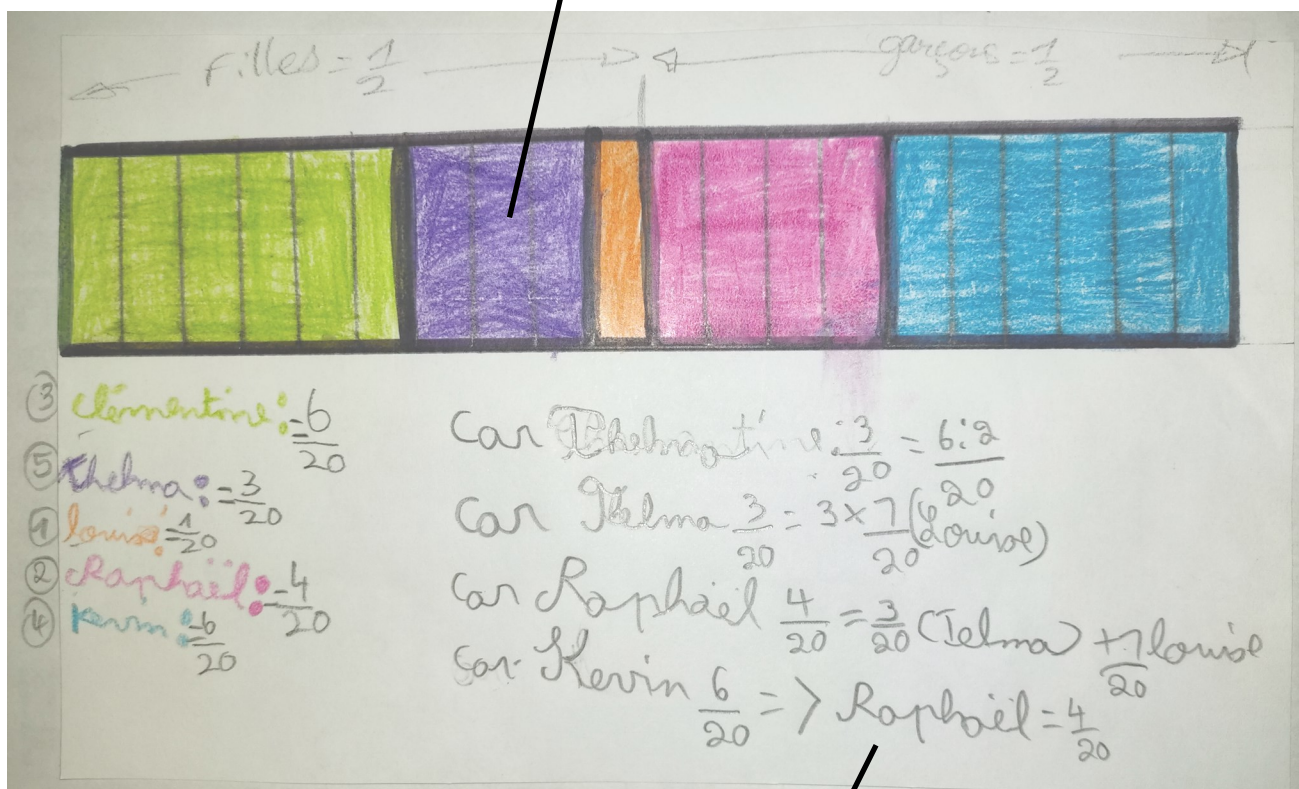 filles = 1/2
garçons = 1/2
③ Clémentine: = 6/20
⑤ thelma: = 3/20
① louise: = 1/20
② Raphaël: = 4/20
④ Kevin: = 6/20
Car 3/20 = 6:2/20
Car Telma 3/20 = 3 × 1/20 (Louise)
Car Raphaël 4/20 = 3/20 (Telma) + 1/20 louise
Car Kevin 6/20 = > Raphaël = 4/20